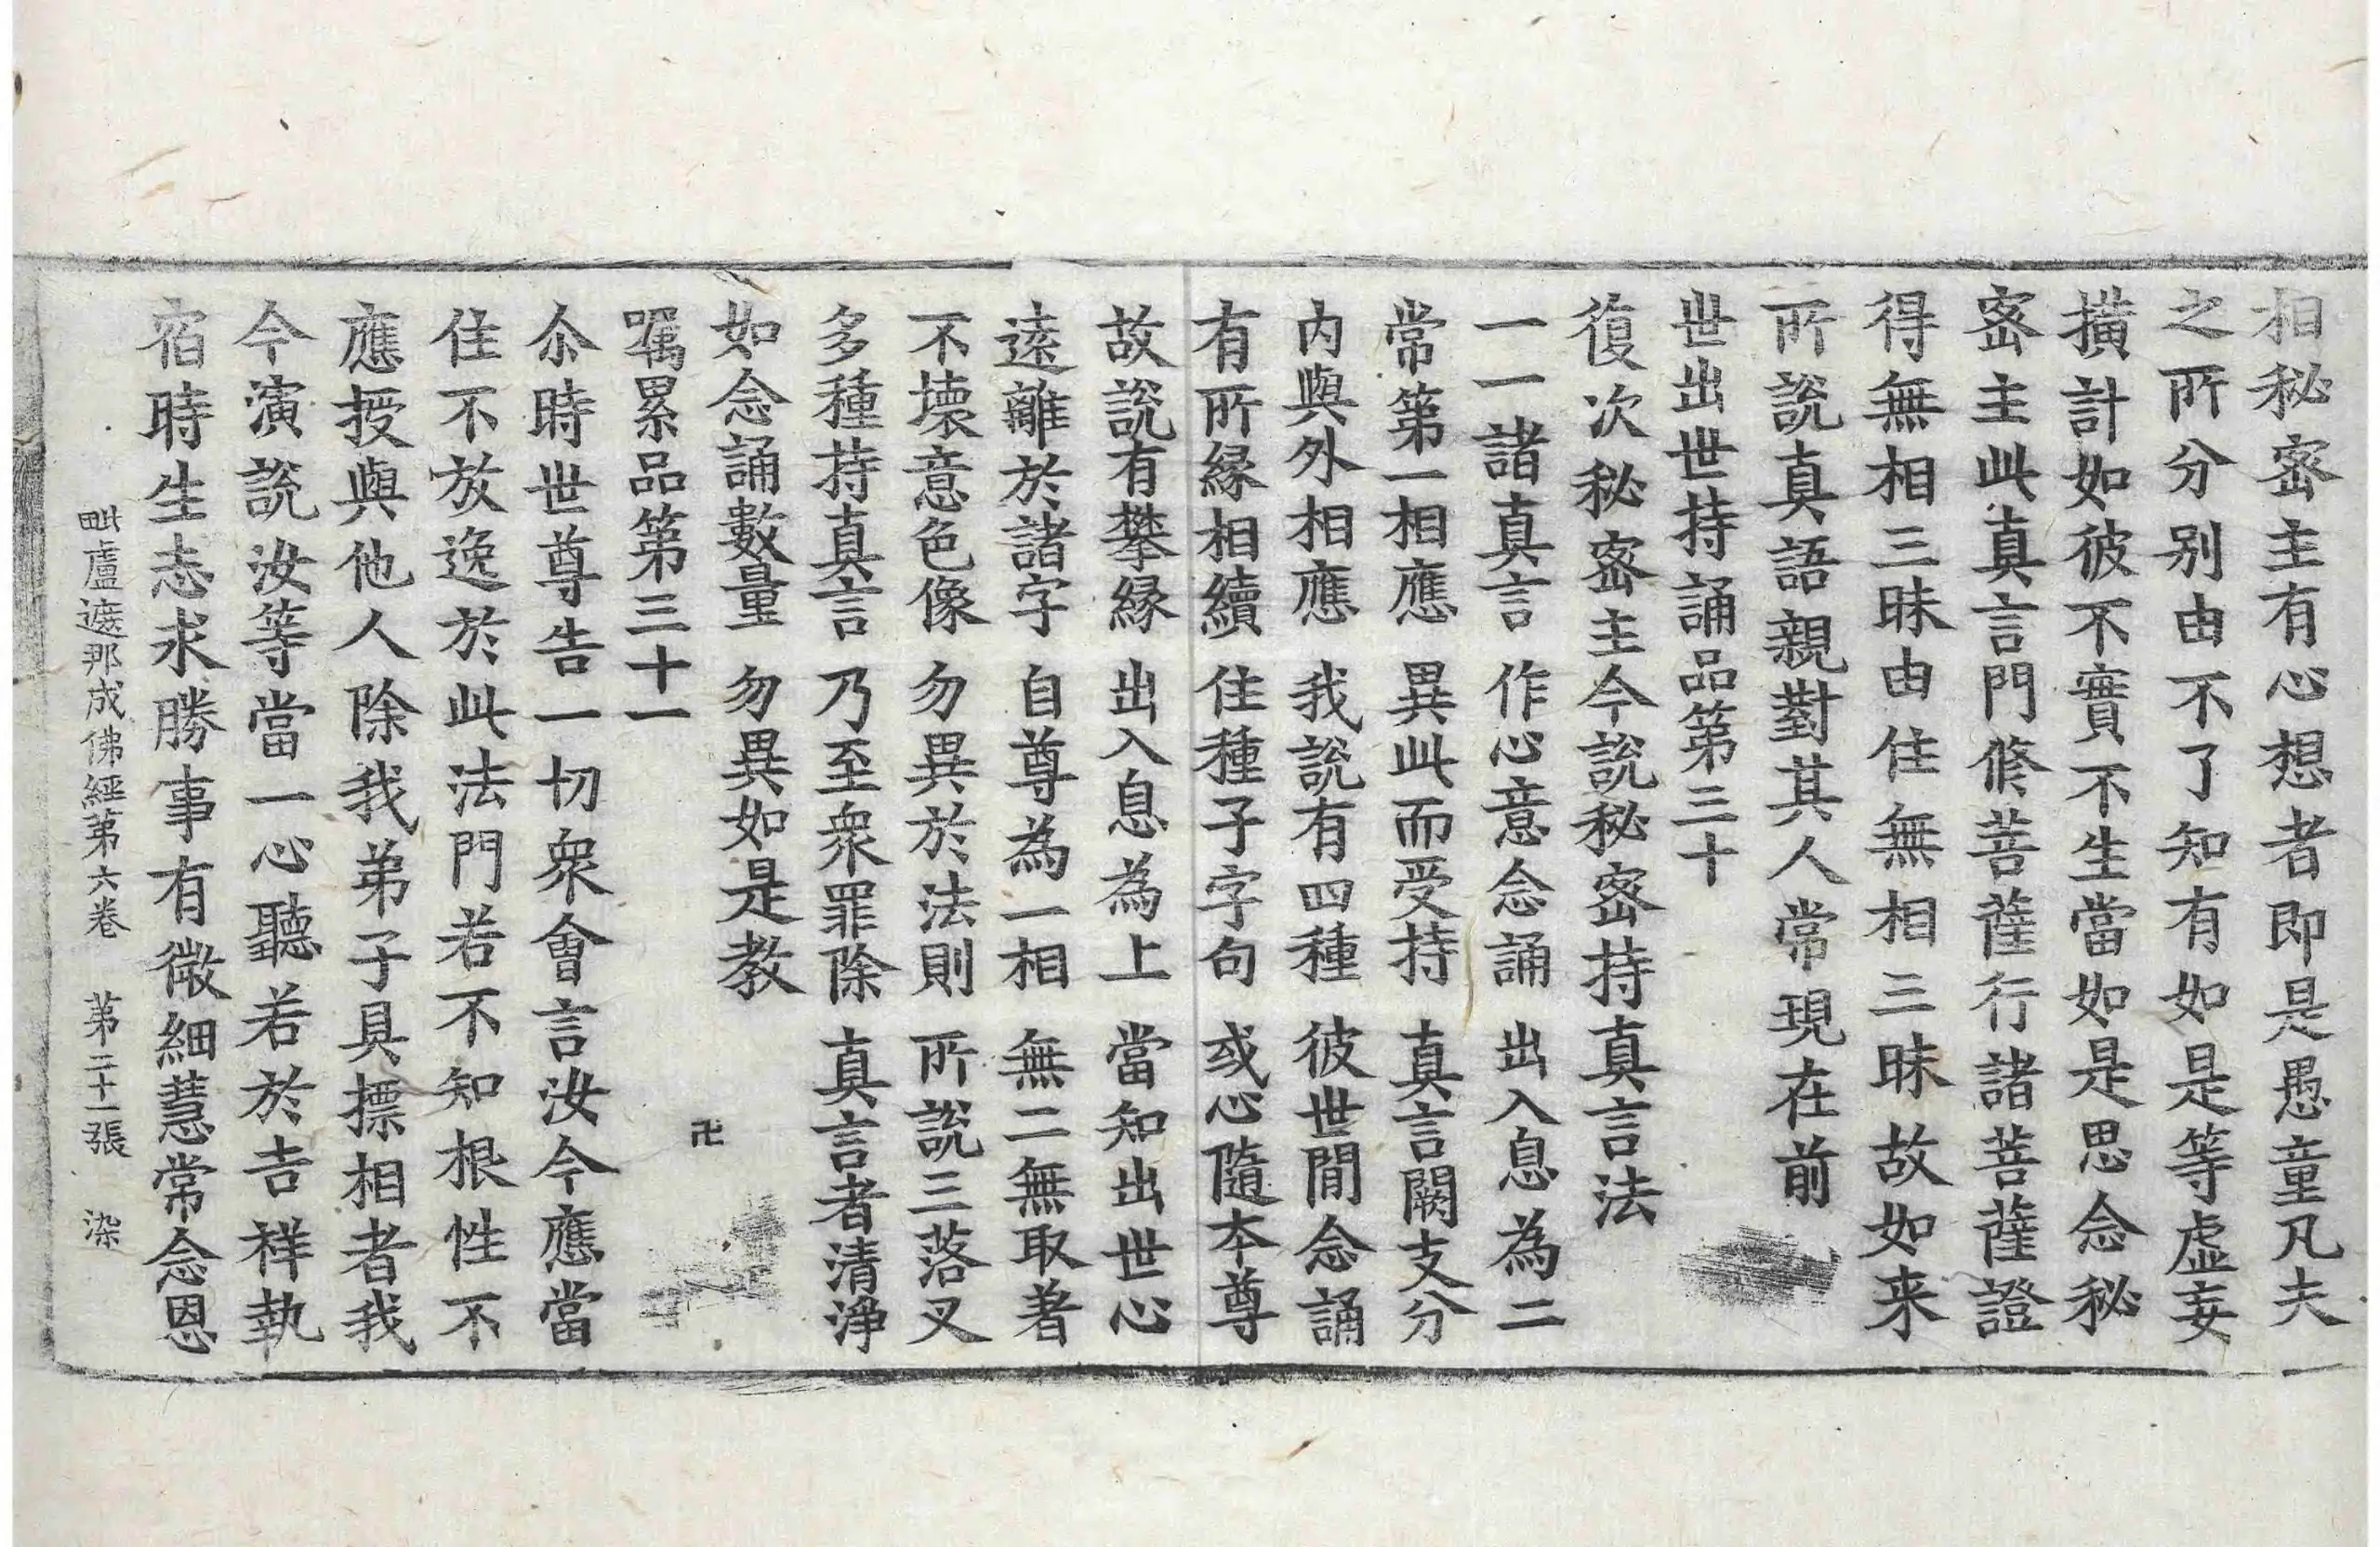 相秘密主有心想者即是愚童凡夫
之所分別由不了知有如是等虛妄
橫計如彼不實不生當如是思念秘
密主此真言門修菩薩行諸菩薩證
得無相三昧由住無相三昧故如来
所說真語親對其人常現在前
世出世持誦品第三十
復次秘密主今說秘密持真言法
一一諸真言 作心意念誦 出入息為二
常第一相應 異此而受持 真言闕支分
內與外相應 我說有四種 彼世間念誦
有所緣相續 住種子字句 或心隨本尊
故說有攀緣 出入息為上 當知出世心
遠離於諸字 自尊為一相 無二無取著
不壞意色像 勿異於法則 所說三落叉
多種持真言 乃至衆罪除 真言者清淨
如念誦數量 勿異如是教
卍
囑累品第三十一
尒時世尊告一切衆會言汝今應當
住不放逸於此法門若不知根性不
應授與他人除我弟子具摽相者我
今演說汝等當一心聽若於吉祥執
宿時生志求勝事有微細慧常念恩
毗盧遮那成佛經第六卷 第二十一張 染